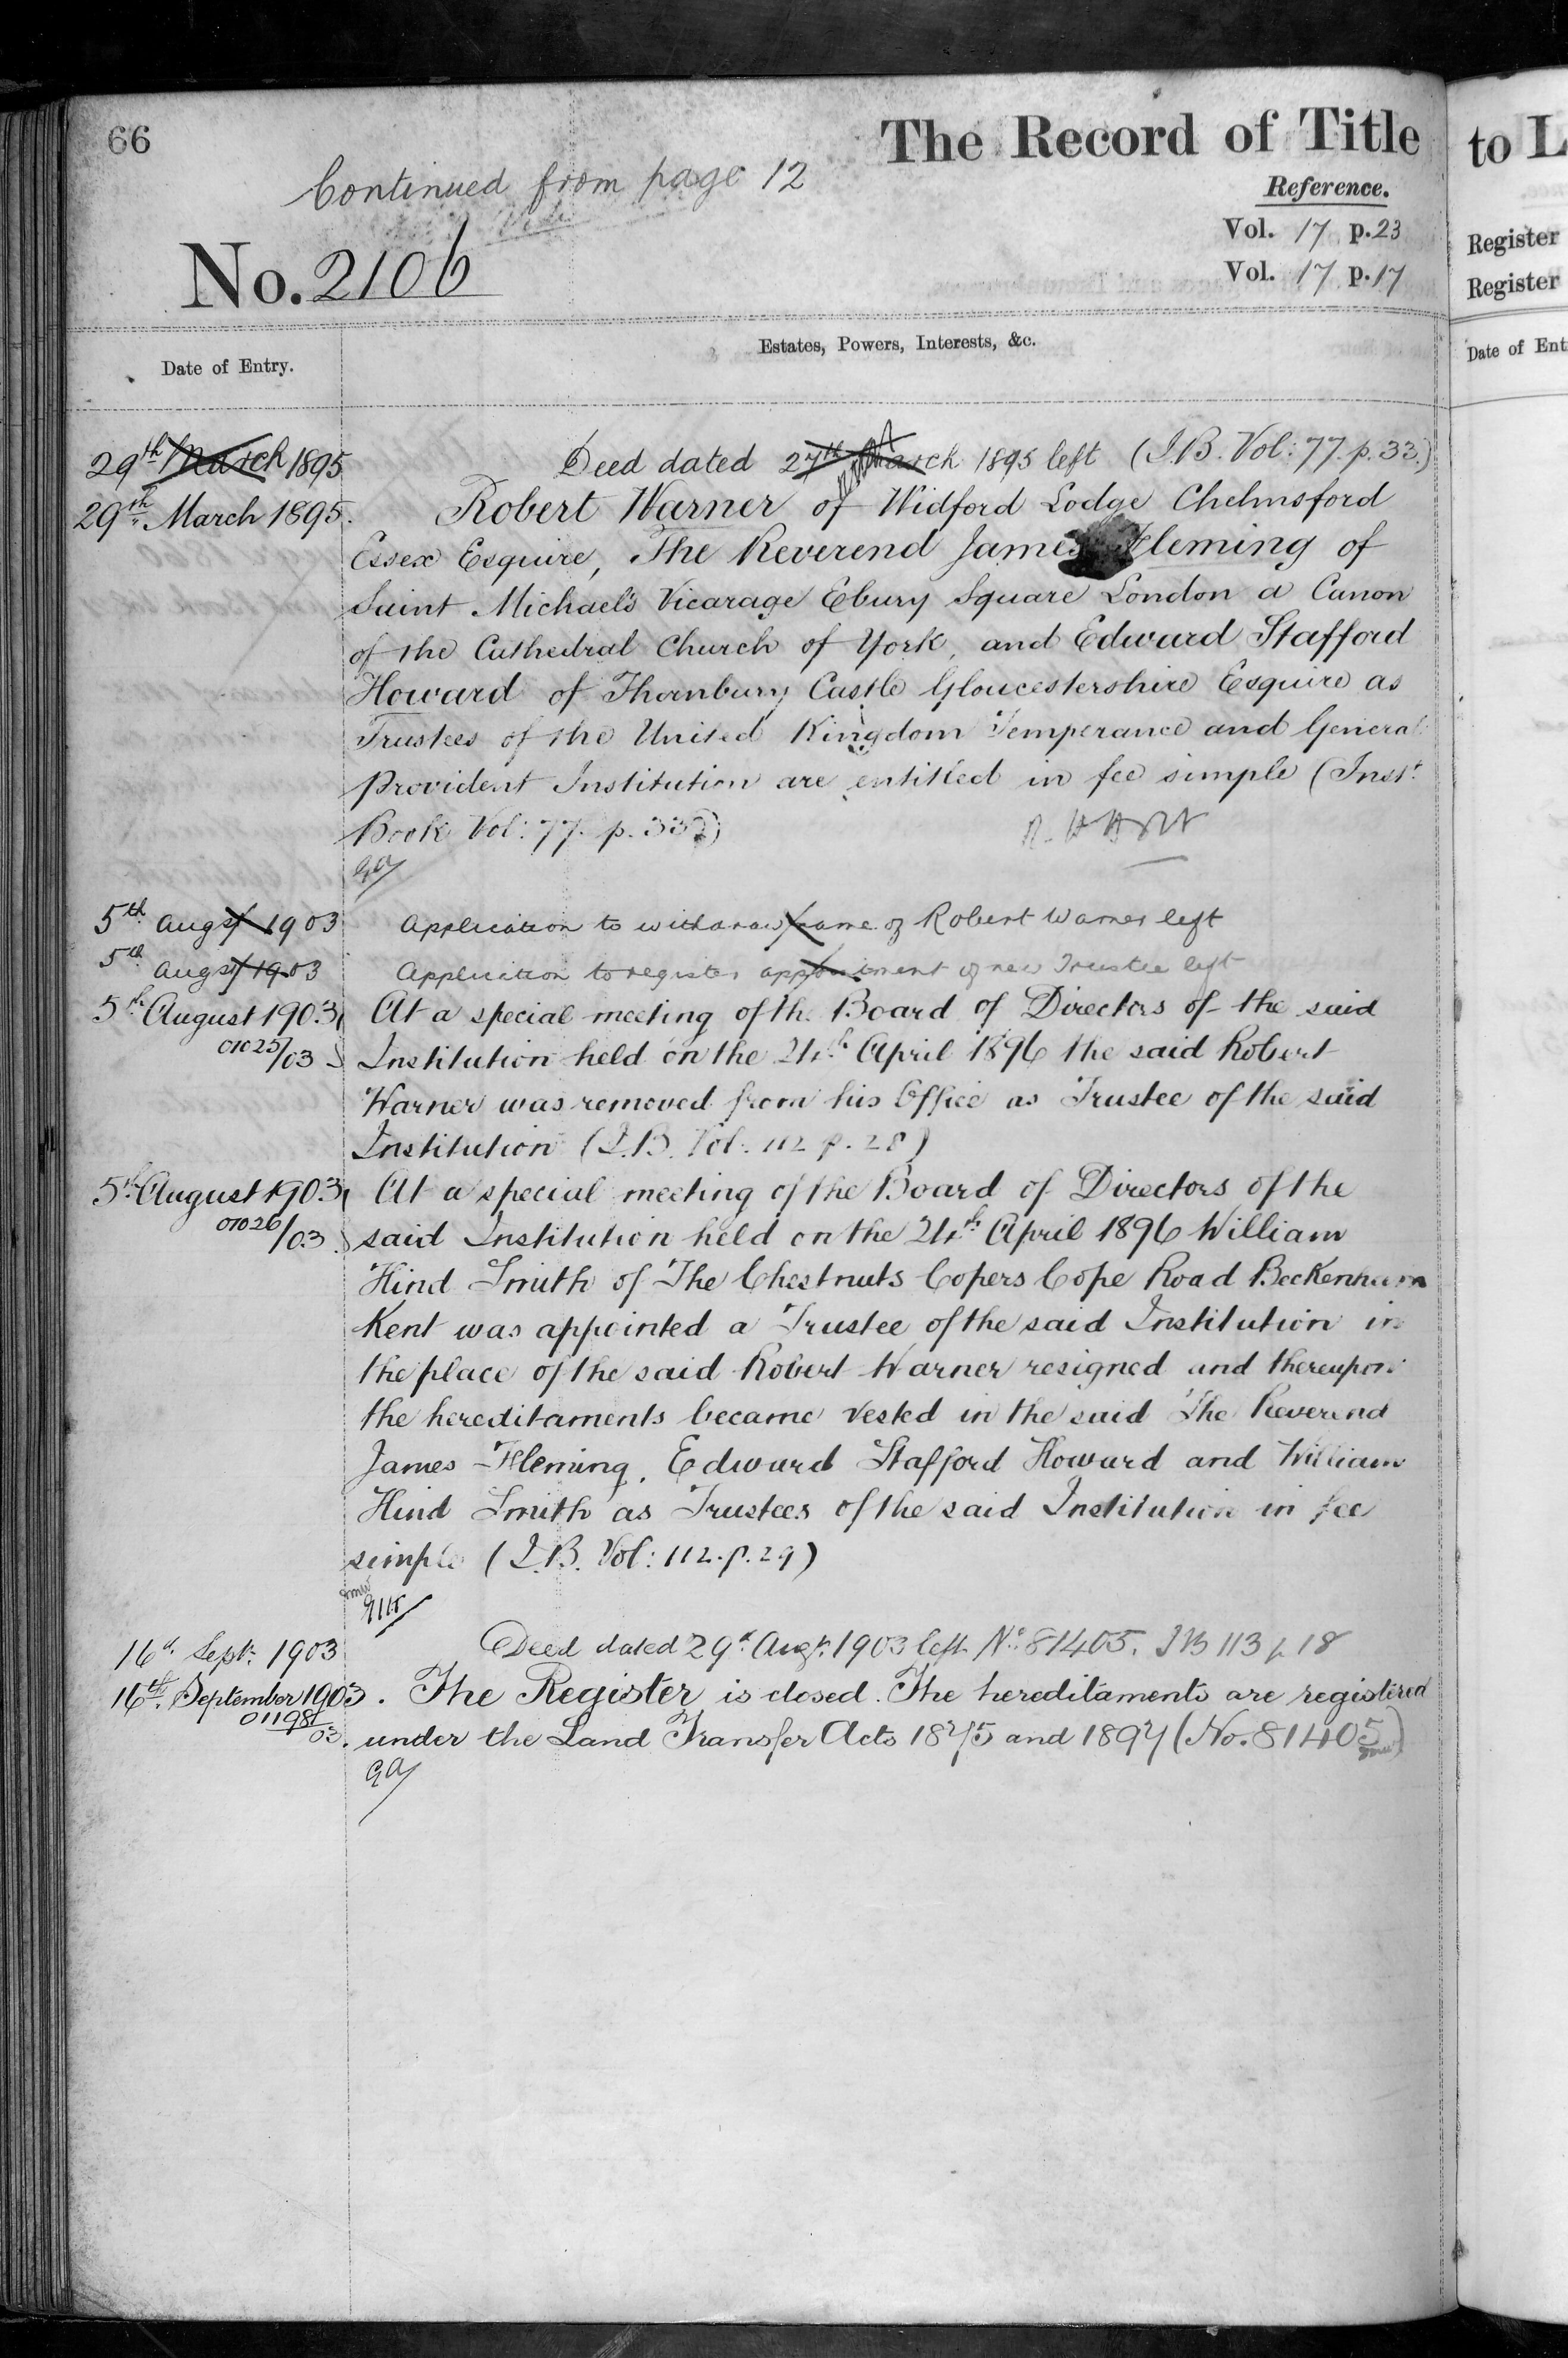 66
The Record of Title
to L
Continued from page 12
Reference.
Vol. 17 p. 23
Register
No. 2106
Vol. 17 p. 17
Register
Date of Entry.
Estates, Powers, Interests, &c.
Date of Ent
29th March 1895 Deed dated 27th March 1895 left (I.B. Vol: 77. p. 33.)
29th March 1895. Robert Warner of Widford Lodge Chelmsford
Essex Esquire, The Reverend James Fleming of
Saint Michael's Vicarage Ebury Square London a Canon
of the Cathedral Church of York, and Edward Stafford
Howard of Thornbury Castle Gloucestershire Esquire as
Trustees of the United Kingdom Temperance and General
Provident Institution are entitled in fee simple (Inst.
Book Vol: 77. p. 33)
5th Augst 1903 Application to withdraw name of Robert Warner left
5th Augst 1903 Application to register appointment of new Trustee left
5th August 1903 At a special meeting of the Board of Directors of the said
01025/03 Institution held on the 24th April 1896 the said Robert
Warner was removed from his Office as Trustee of the said
Institution (I.B. Vol: 112 p. 28)
5th August 1903 At a special meeting of the Board of Directors of the
01026/03 said Institution held on the 24th April 1896 William
Hind Smith of The Chestnuts Copers Cope Road Beckenham
Kent was appointed a Trustee of the said Institution in
the place of the said Robert Warner resigned and thereupon
the hereditaments became vested in the said The Reverend
James Fleming, Edward Stafford Howard and William
Hind Smith as Trustees of the said Institution in fee
simple (I.B. Vol: 112. p. 29)
16th Sept. 1903 Deed dated 29th Augt. 1903 left No. 81405. IB 113 p 18
16th September 1903. The Register is closed. The hereditaments are registered
01198/03. under the Land Transfer Acts 1875 and 1897 (No. 81405)